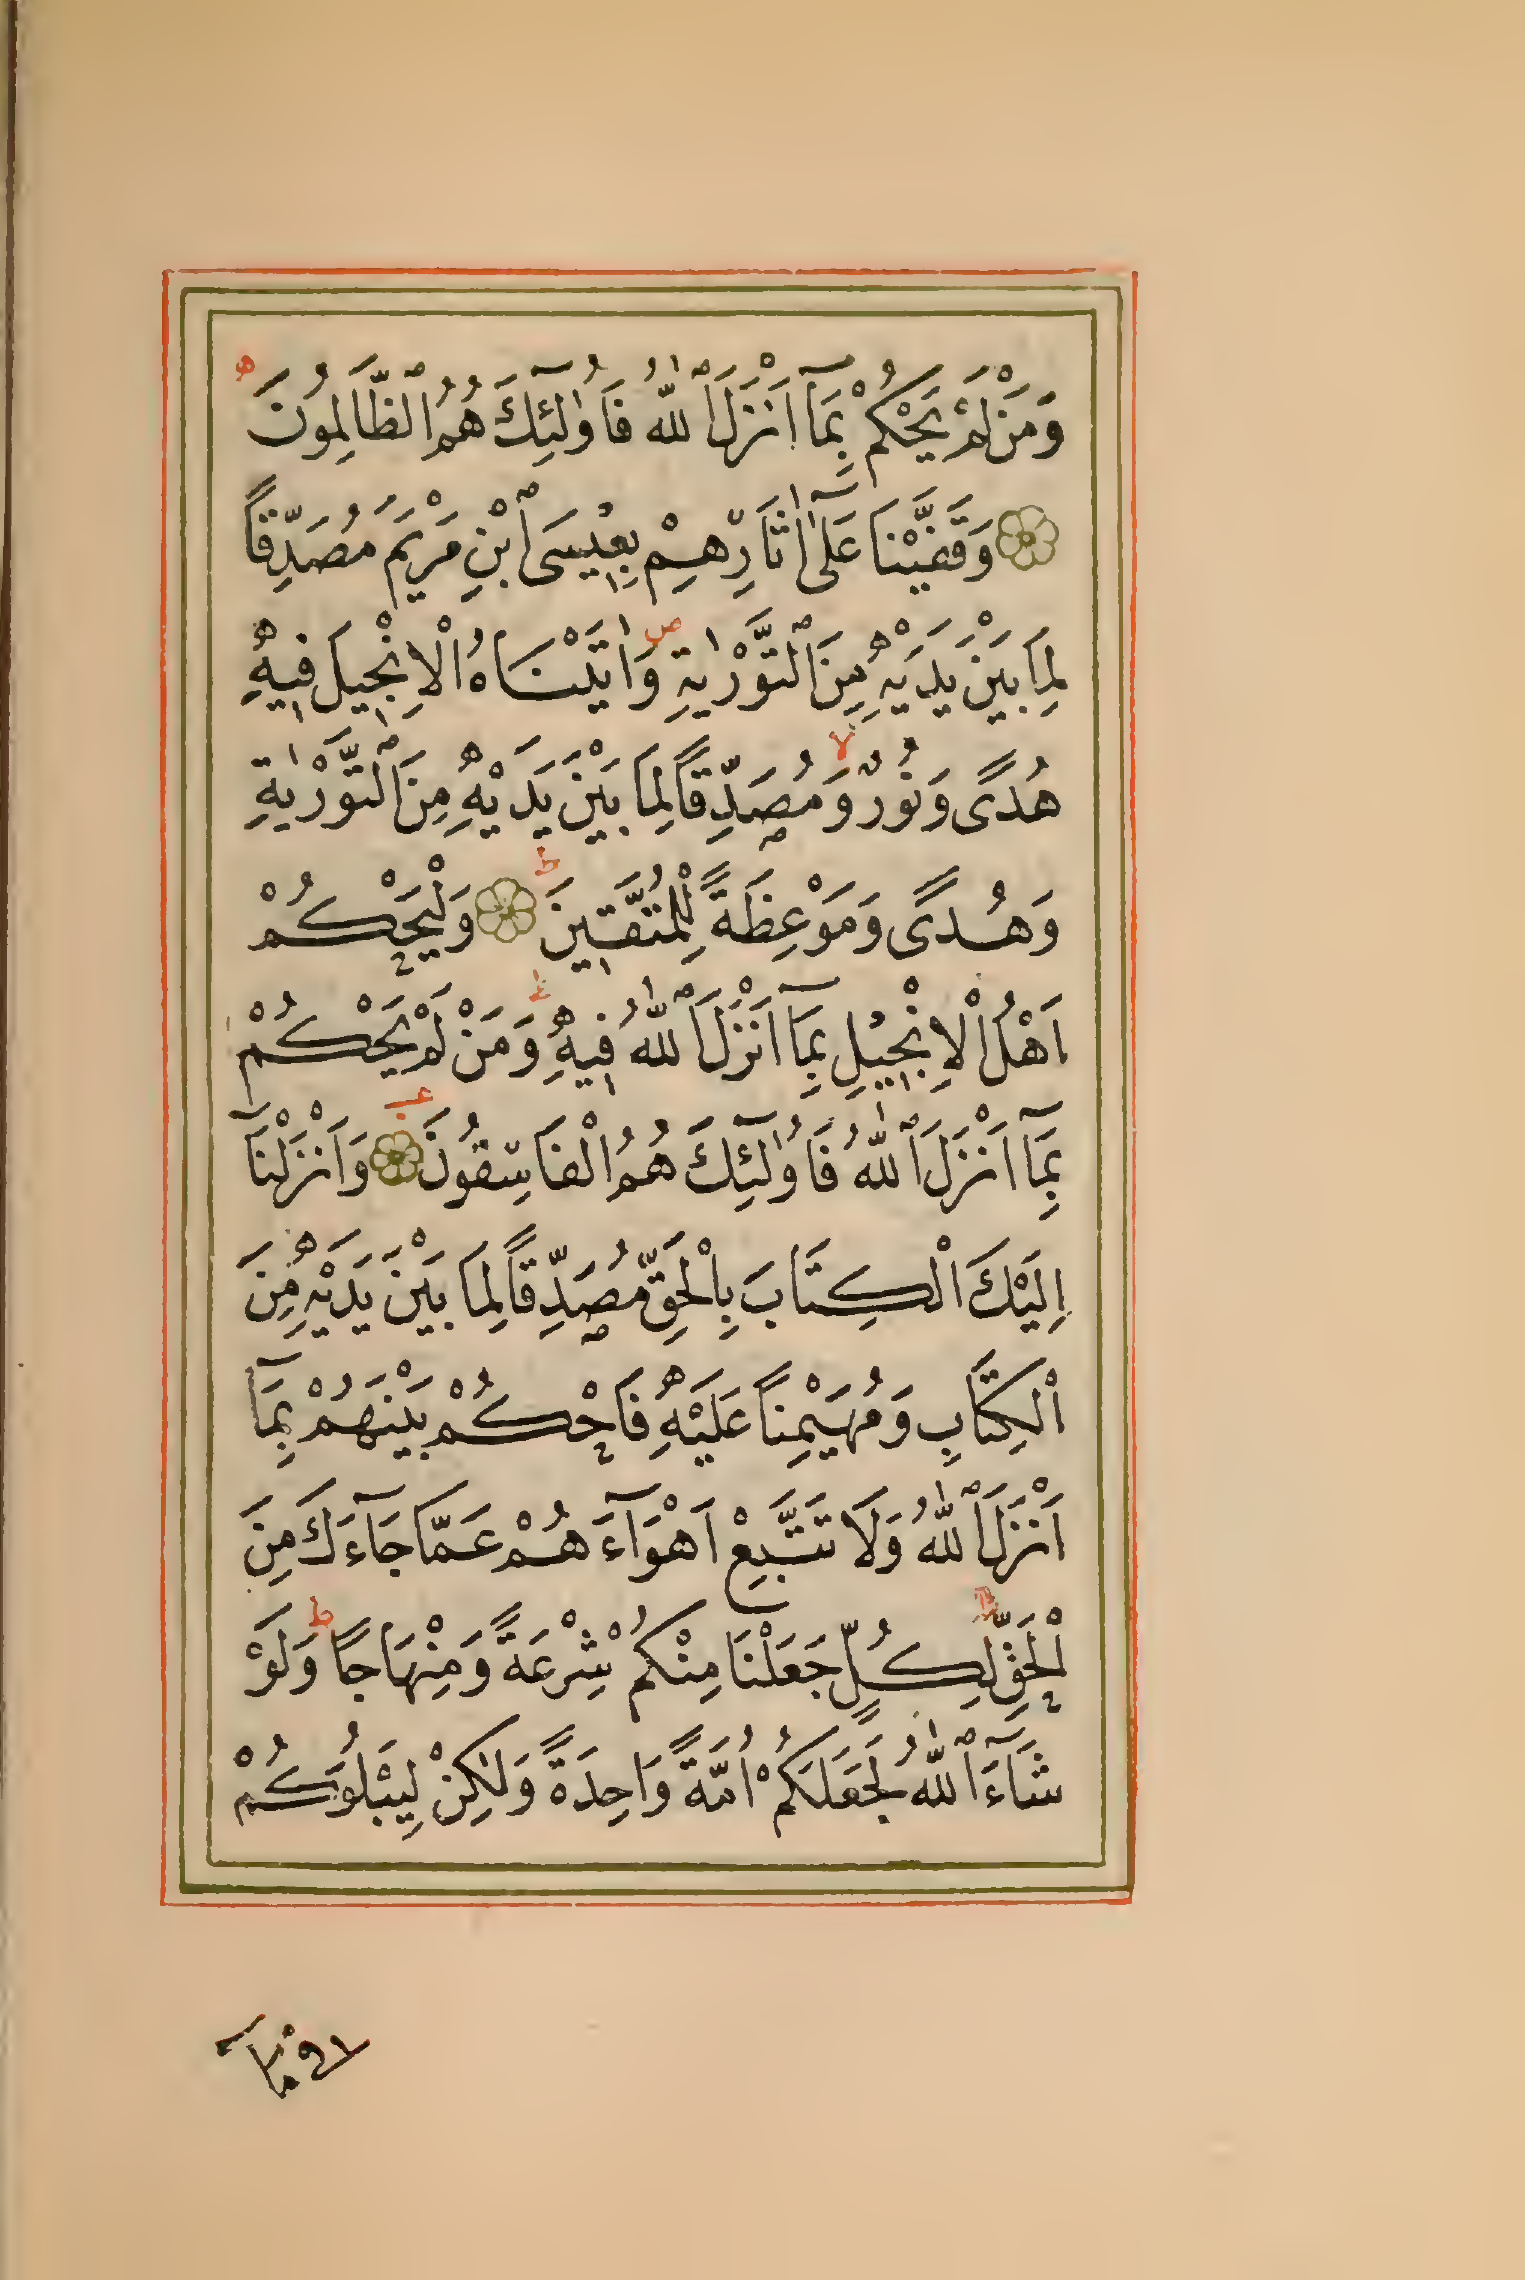 وَمَنْ لَمْ يَحْكُمْ بِمَآ اَنْزَلَ ٱللّٰهُ فَاُولٰٓئِكَ هُمُ ٱلظَّالِمُونَ
وَقَفَّيْنَا عَلٰٓى اٰثَارِهِمْ بِعِيْسَى ٱبْنِ مَرْيَمَ مُصَدِّقًا
لِمَا بَيْنَ يَدَيْهِ مِنَ ٱلتَّوْرٰيةِ ص وَاٰتَيْنَاهُ الْاِنْجِيلَ فِيهِ
هُدًى وَنُورٌ لا وَمُصَدِّقًا لِمَا بَيْنَ يَدَيْهِ مِنَ ٱلتَّوْرٰيةِ
وَهُدًى وَمَوْعِظَةً لِلْمُتَّقِينَ ط وَلْيَحْكُمْ
اَهْلُ الْاِنْجِيْلِ بِمَآ اَنْزَلَ ٱللّٰهُ فِيهِ وَمَنْ لَمْ يَحْكُمْ
بِمَآ اَنْزَلَ ٱللّٰهُ فَاُولٰٓئِكَ هُمُ الْفَاسِقُونَ وَاَنْزَلْنَآ
اِلَيْكَ الْكِتَابَ بِالْحَقِّ مُصَدِّقًا لِمَا بَيْنَ يَدَيْهِ مِنَ
الْكِتَابِ وَمُهَيْمِنًا عَلَيْهِ فَاحْكُمْ بَيْنَهُمْ بِمَآ
اَنْزَلَ ٱللّٰهُ وَلَا تَتَّبِعْ اَهْوَآءَهُمْ عَمَّا جَآءَكَ مِنَ
الْحَقِّ لِكُلٍّ جَعَلْنَا مِنْكُمْ شِرْعَةً وَمِنْهَاجًا ط وَلَوْ
شَآءَ ٱللّٰهُ لَجَعَلَكُمْ اُمَّةً وَاحِدَةً وَلٰكِنْ لِيَبْلُوَكُمْ
فِى مَآ